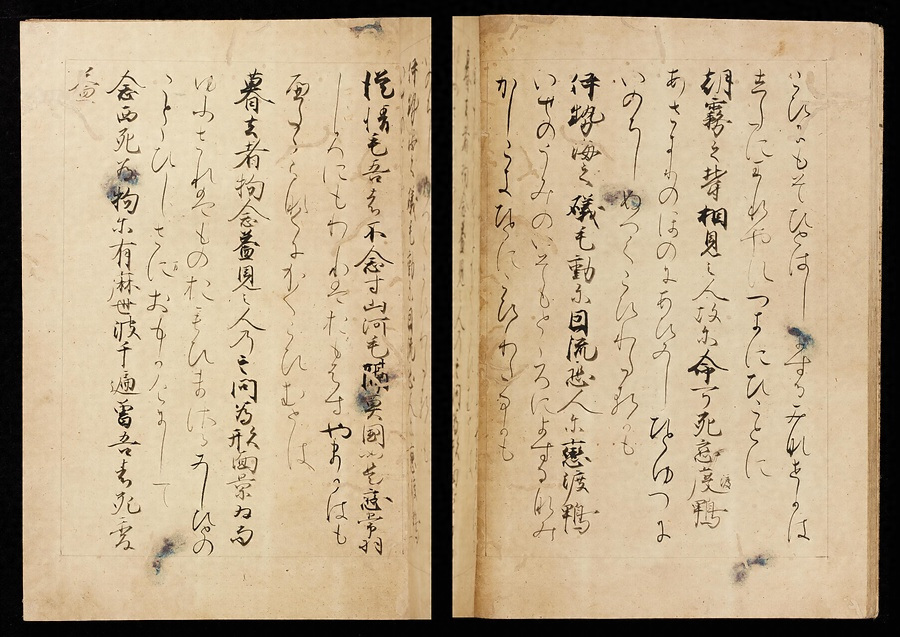 こひにもそひとはしにするみなせかは
したにわれやせつきにひことに
朝霧之欝相見之人故尓命可死戀度鴨
あさきりのほのにあひみしひとゆゑに
いのちしぬへくこひわたるかも
伊勢海之礒毛動尓因流恐人尓戀渡鴨
いせのうみのいそもとゝろによするなみ
かしこきひとにこひわたるかも
従情毛吾者不念寸山河毛隔莫國如是戀常羽
こゝろにもわれはおもはすやまかはも
へたゝらなくにかくこひむとは
暮去者物念益見之人乃言問為形面景為而
ゆふされはものおもひまさるみしひとの
ことゝひしさまおもかけにして
念西死為物尓有麻世波千遍曽吾者死變
益